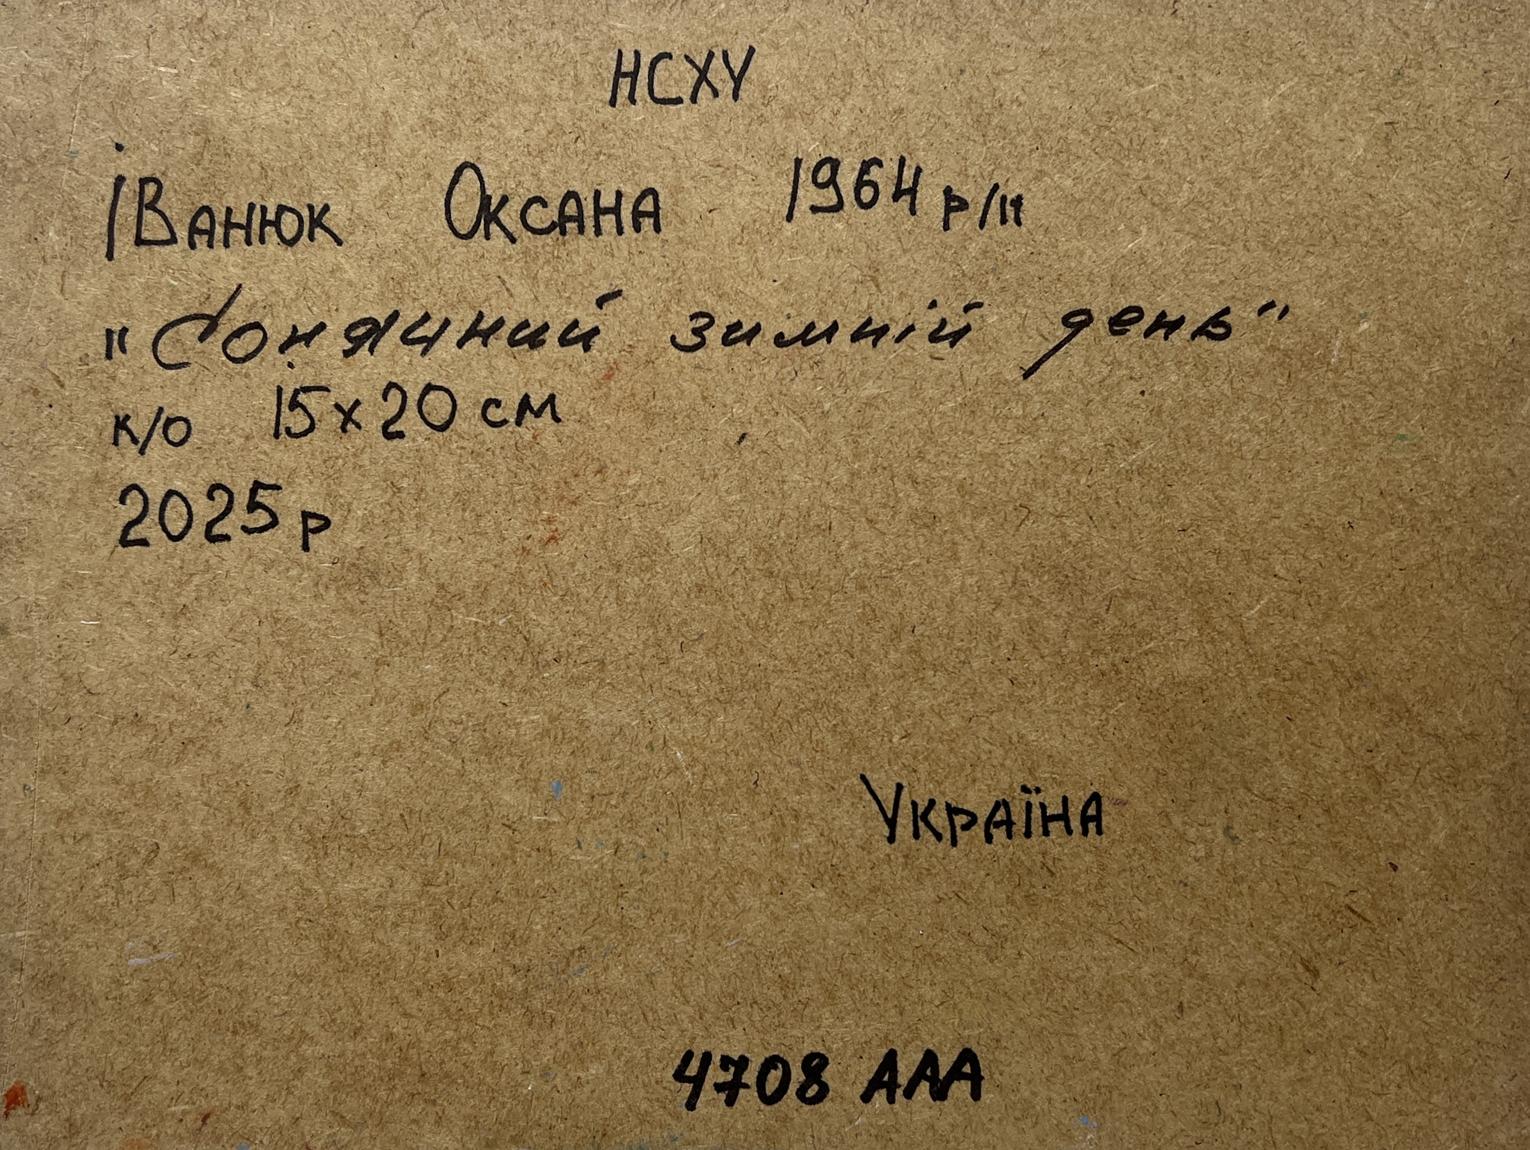 НСХУ
Іванюк Оксана 1964 р/н
"Сонячний зимній день"
к/о 15х20 см
2025 р
Україна
4708 ААА